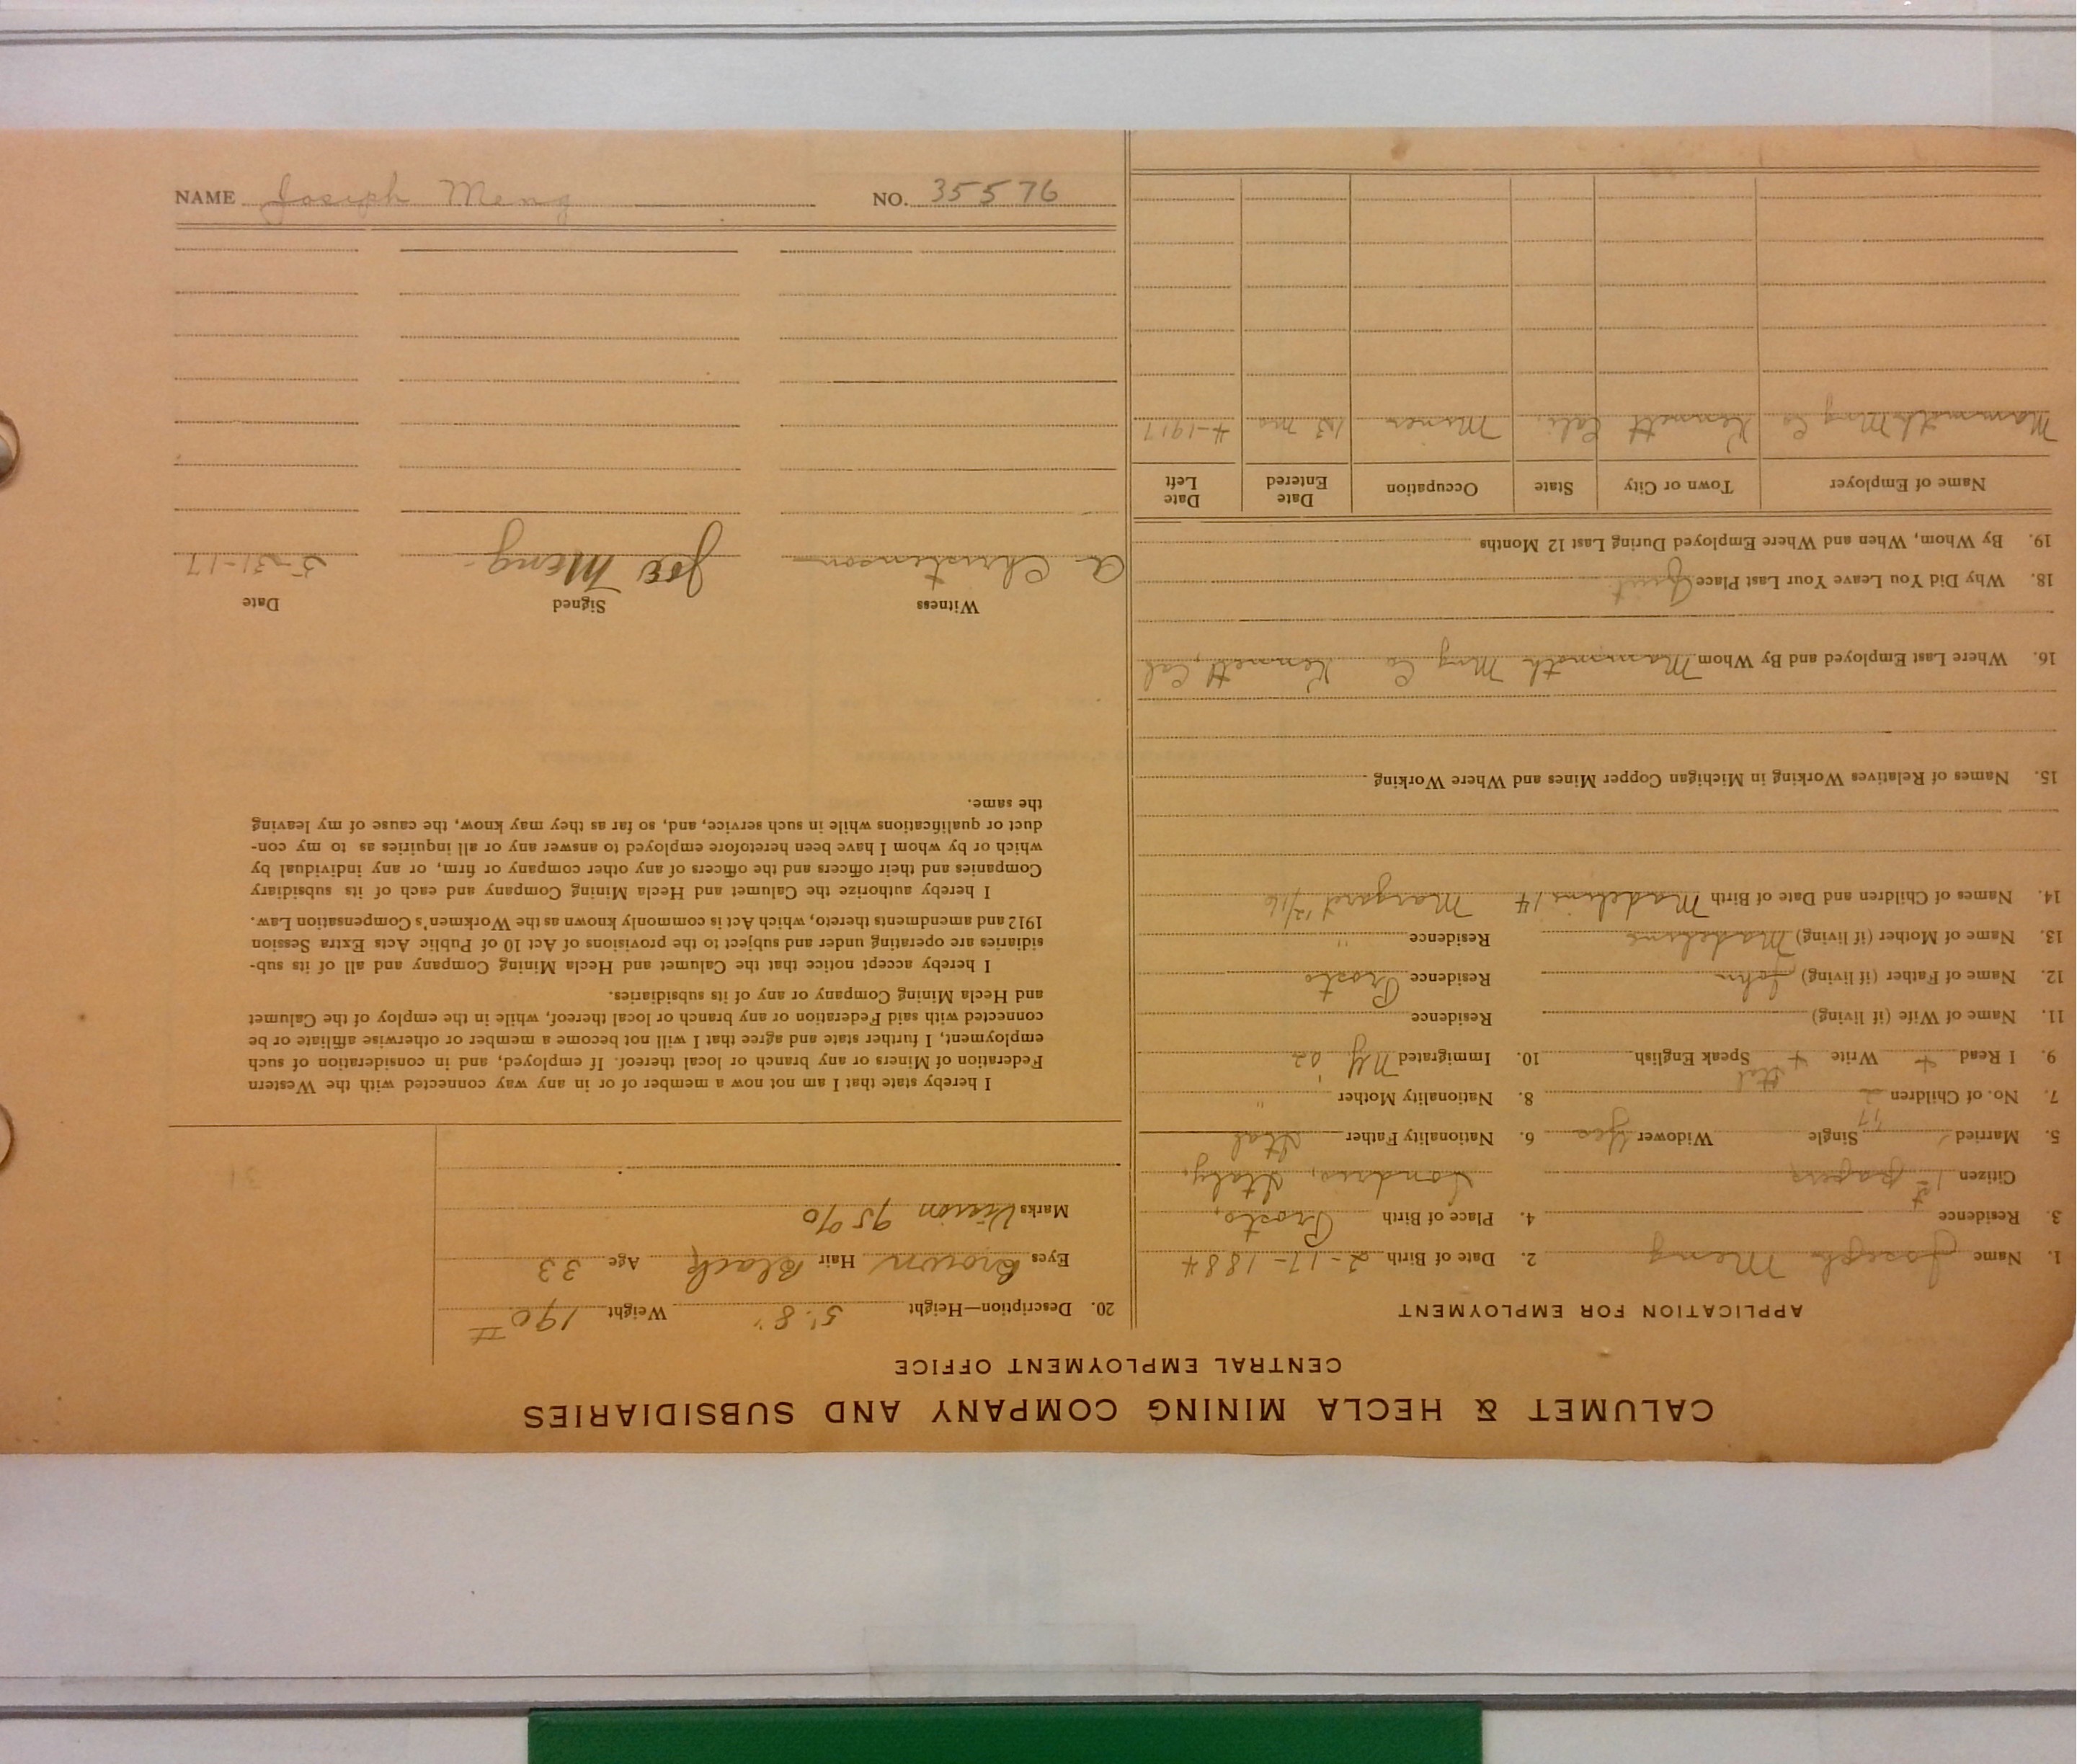 CALUMET & HECLA MINING COMPANY AND SUBSIDIARIES
CENTRAL EMPLOYMENT OFFICE
APPLICATION FOR EMPLOYMENT
1. Name Joseph Meng 2. Date of Birth 2-17-1884
3. Residence 4. Place of Birth Prosto,
Citizen 1st papers Sondrio, Italy.
5. Married Single Widower Yes 6. Nationality Father Ital
7. No. of Children 2 8. Nationality Mother "
9. I Read + Write + Speak English Ital 10. Immigrated NY '02
11. Name of Wife (if living) Residence
12. Name of Father (if living) John Residence Prosto
13. Name of Mother (if living) Madeline Residence "
14. Names of Children and Date of Birth Madeline 14 Margaret 12/16
15. Names of Relatives Working in Michigan Copper Mines and Where Working
16. Where Last Employed and By Whom Mammoth Mng Co Kennett, Cal
18. Why Did You Leave Your Last Place Quit
19. By Whom, When and Where Employed During Last 12 Months
Name of Employer Town or City State Occupation Date Entered Date Left
Mammoth Mng Co Kennett Cali. Miner mo 4-1917
20. Description—Height 5' 8" Weight 190 #
Eyes Brown Hair Black Age 33
Marks Vision 95%
31
I hereby state that I am not now a member of or in any way connected with the Western
Federation of Miners or any branch or local thereof. If employed, and in consideration of such
employment, I further state and agree that I will not become a member or otherwise affiliate or be
connected with said Federation or any branch or local thereof, while in the employ of the Calumet
and Hecla Mining Company or any of its subsidiaries.
I hereby accept notice that the Calumet and Hecla Mining Company and all of its sub-
sidiaries are operating under and subject to the provisions of Act 10 of Public Acts Extra Session
1912 and amendments thereto, which Act is commonly known as the Workmen's Compensation Law.
I hereby authorize the Calumet and Hecla Mining Company and each of its subsidiary
Companies and their officers and the officers of any other company or firm, or any individual by
which or by whom I have been heretofore employed to answer any or all inquiries as to my con-
duct or qualifications while in such service, and, so far as they may know, the cause of my leaving
the same.
Witness Signed Date
A Christenson Joe Meng 5-31-17
NAME Joseph Meng NO. 35576